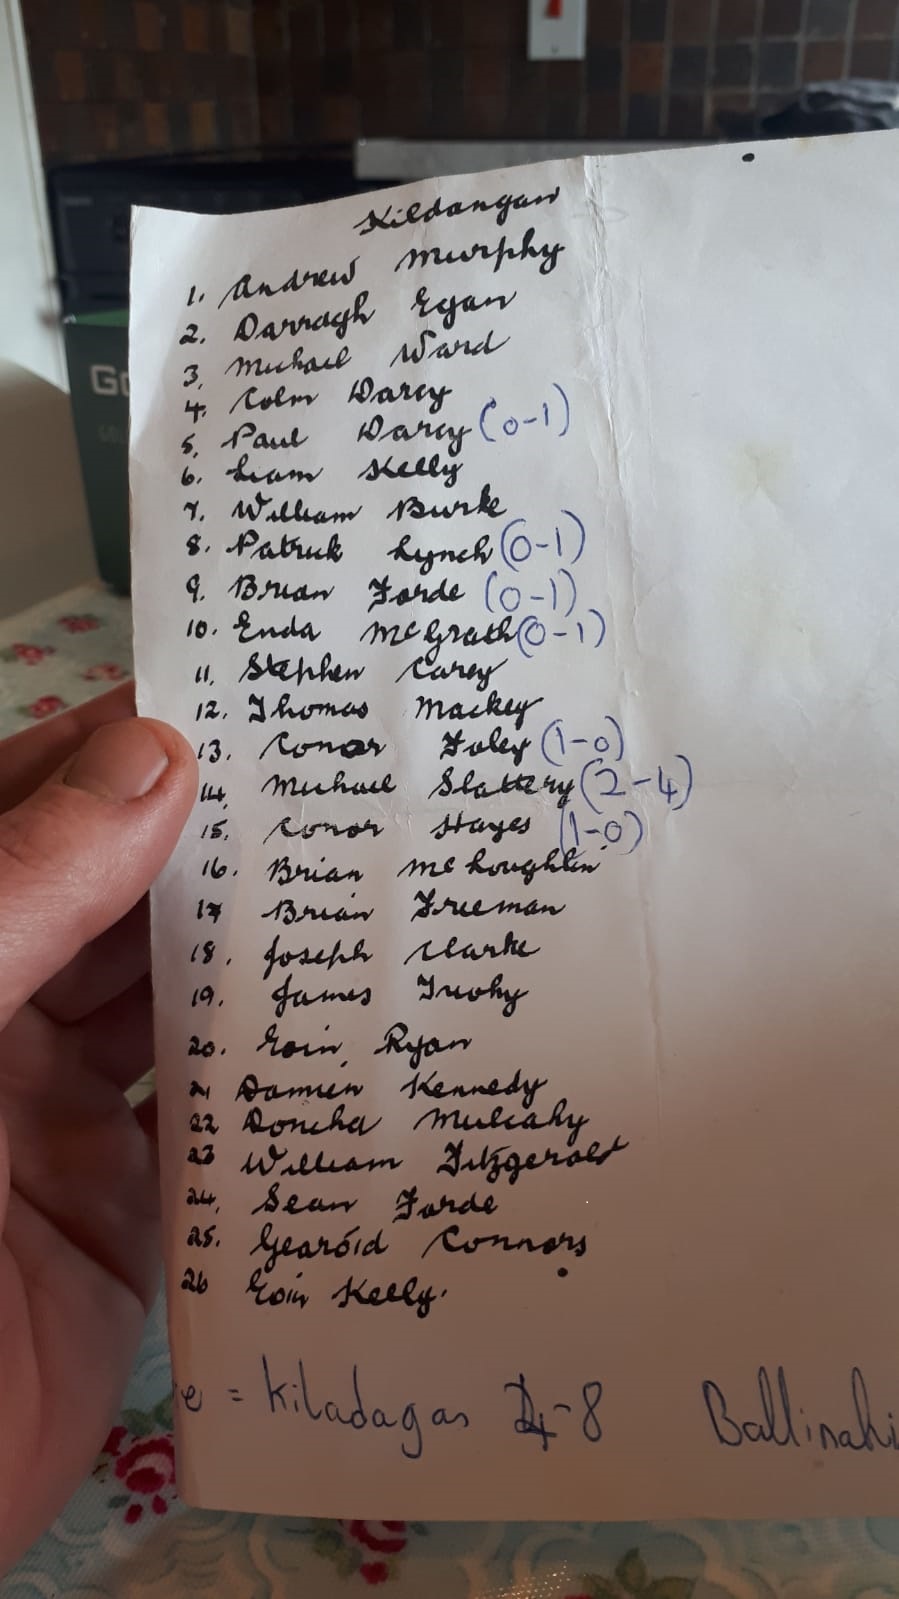 Kildangan
1. Andrew Murphy
2. Darragh Egan
3. Michael Ward
4. Colm Darcy
5. Paul Darcy (0-1)
6. Liam Kelly
7. William Burke
8. Patrick Lynch (0-1)
9. Brian Forde (0-1)
10. Enda McGrath (0-1)
11. Stephen Carey
12. Thomas Mackey
13. Conor Foley (1-0)
14. Michael Slattery (2-4)
15. Conor Hayes (1-0)
16. Brian McLoughlin
17 Brian Freeman
18. Joseph Clarke
19. James Truohy
20. Eoin Ryan
21 Damien Kennedy
22 Doncha Mulcahy
23 William Fitzgerald
24. Sean Forde
25. Gearóid Connors
26 Eoin Kelly.
e = Kiladagas 4-8 Ballinahi